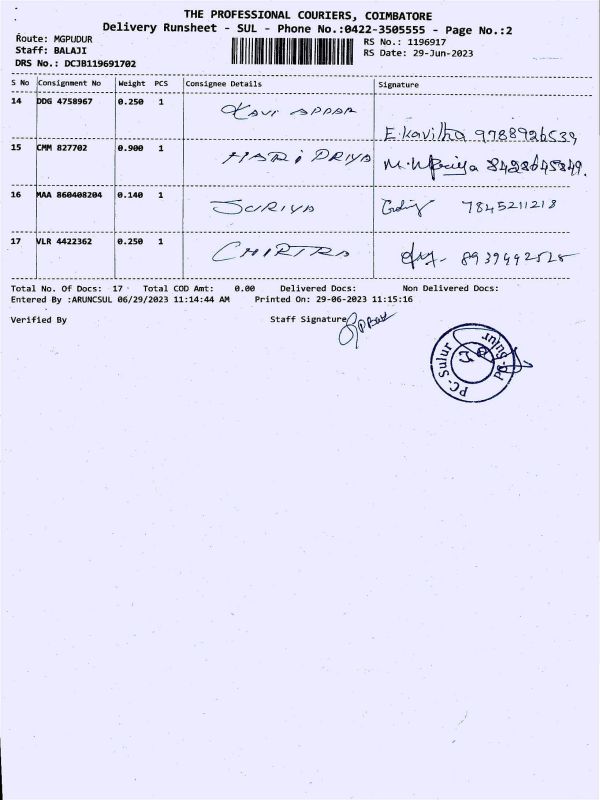 THE PROFESSIONAL COURIERS, COIMBATORE
Delivery Runsheet - SUL - Phone No.:0422-3505555 - Page No.:2
Route: MGPUDUR
Staff: BALAJI
DRS No.: DCJB119691702
RS No.: 1196917
RS Date: 29-Jun-2023
S No Consignment No Weight PCS Consignee Details Signature
14 DDG 4758967 0.250 1 KAVI APPAR
E.kavitha 9788926539
15 CMM 827702 0.900 1 HARI PRIYA 8428645849.
16 MAA 860408204 0.140 1 SURIYA 7845211218
17 VLR 4422362 0.250 1 CHIRTRA 8939492525
Total No. Of Docs: 17 Total COD Amt: 0.00 Delivered Docs: Non Delivered Docs:
Entered By :ARUNCSUL 06/29/2023 11:14:44 AM Printed On: 29-06-2023 11:15:16
Verified By Staff Signature
PC- Sulur